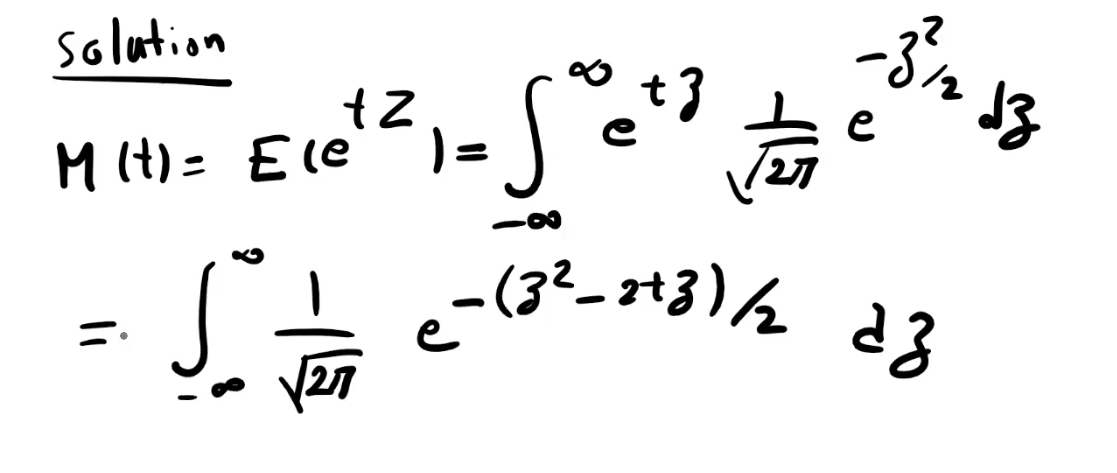 solution
M(t) = E(e^{tZ}) = \int_{-\infty}^{\infty} e^{tz} \frac{1}{\sqrt{2\pi}} e^{-z^2/2} dz
= \int_{-\infty}^{\infty} \frac{1}{\sqrt{2\pi}} e^{-(z^2 - 2tz)/2} dz